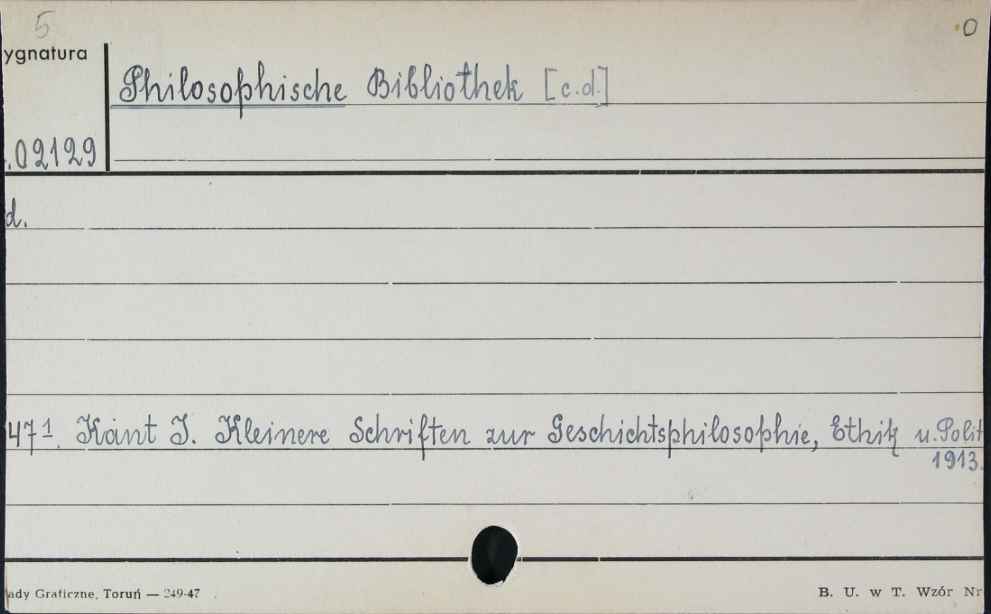 5
0
ygnatura
Philosophische Bibliothek [c.d.]
.02129
d.
47¹. Kant I. Kleinere Schriften zur Geschichtsphilosophie, Ethik u. Polit
1913.
ady Graficzne, Toruń — 249-47
B. U. w T. Wzór Nr